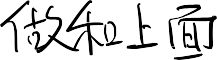 做和上面